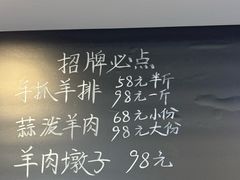 招牌必点
手抓羊排 58元半斤
98元一斤
蒜泼羊肉 68元小份
98元大份
羊肉墩子 98元